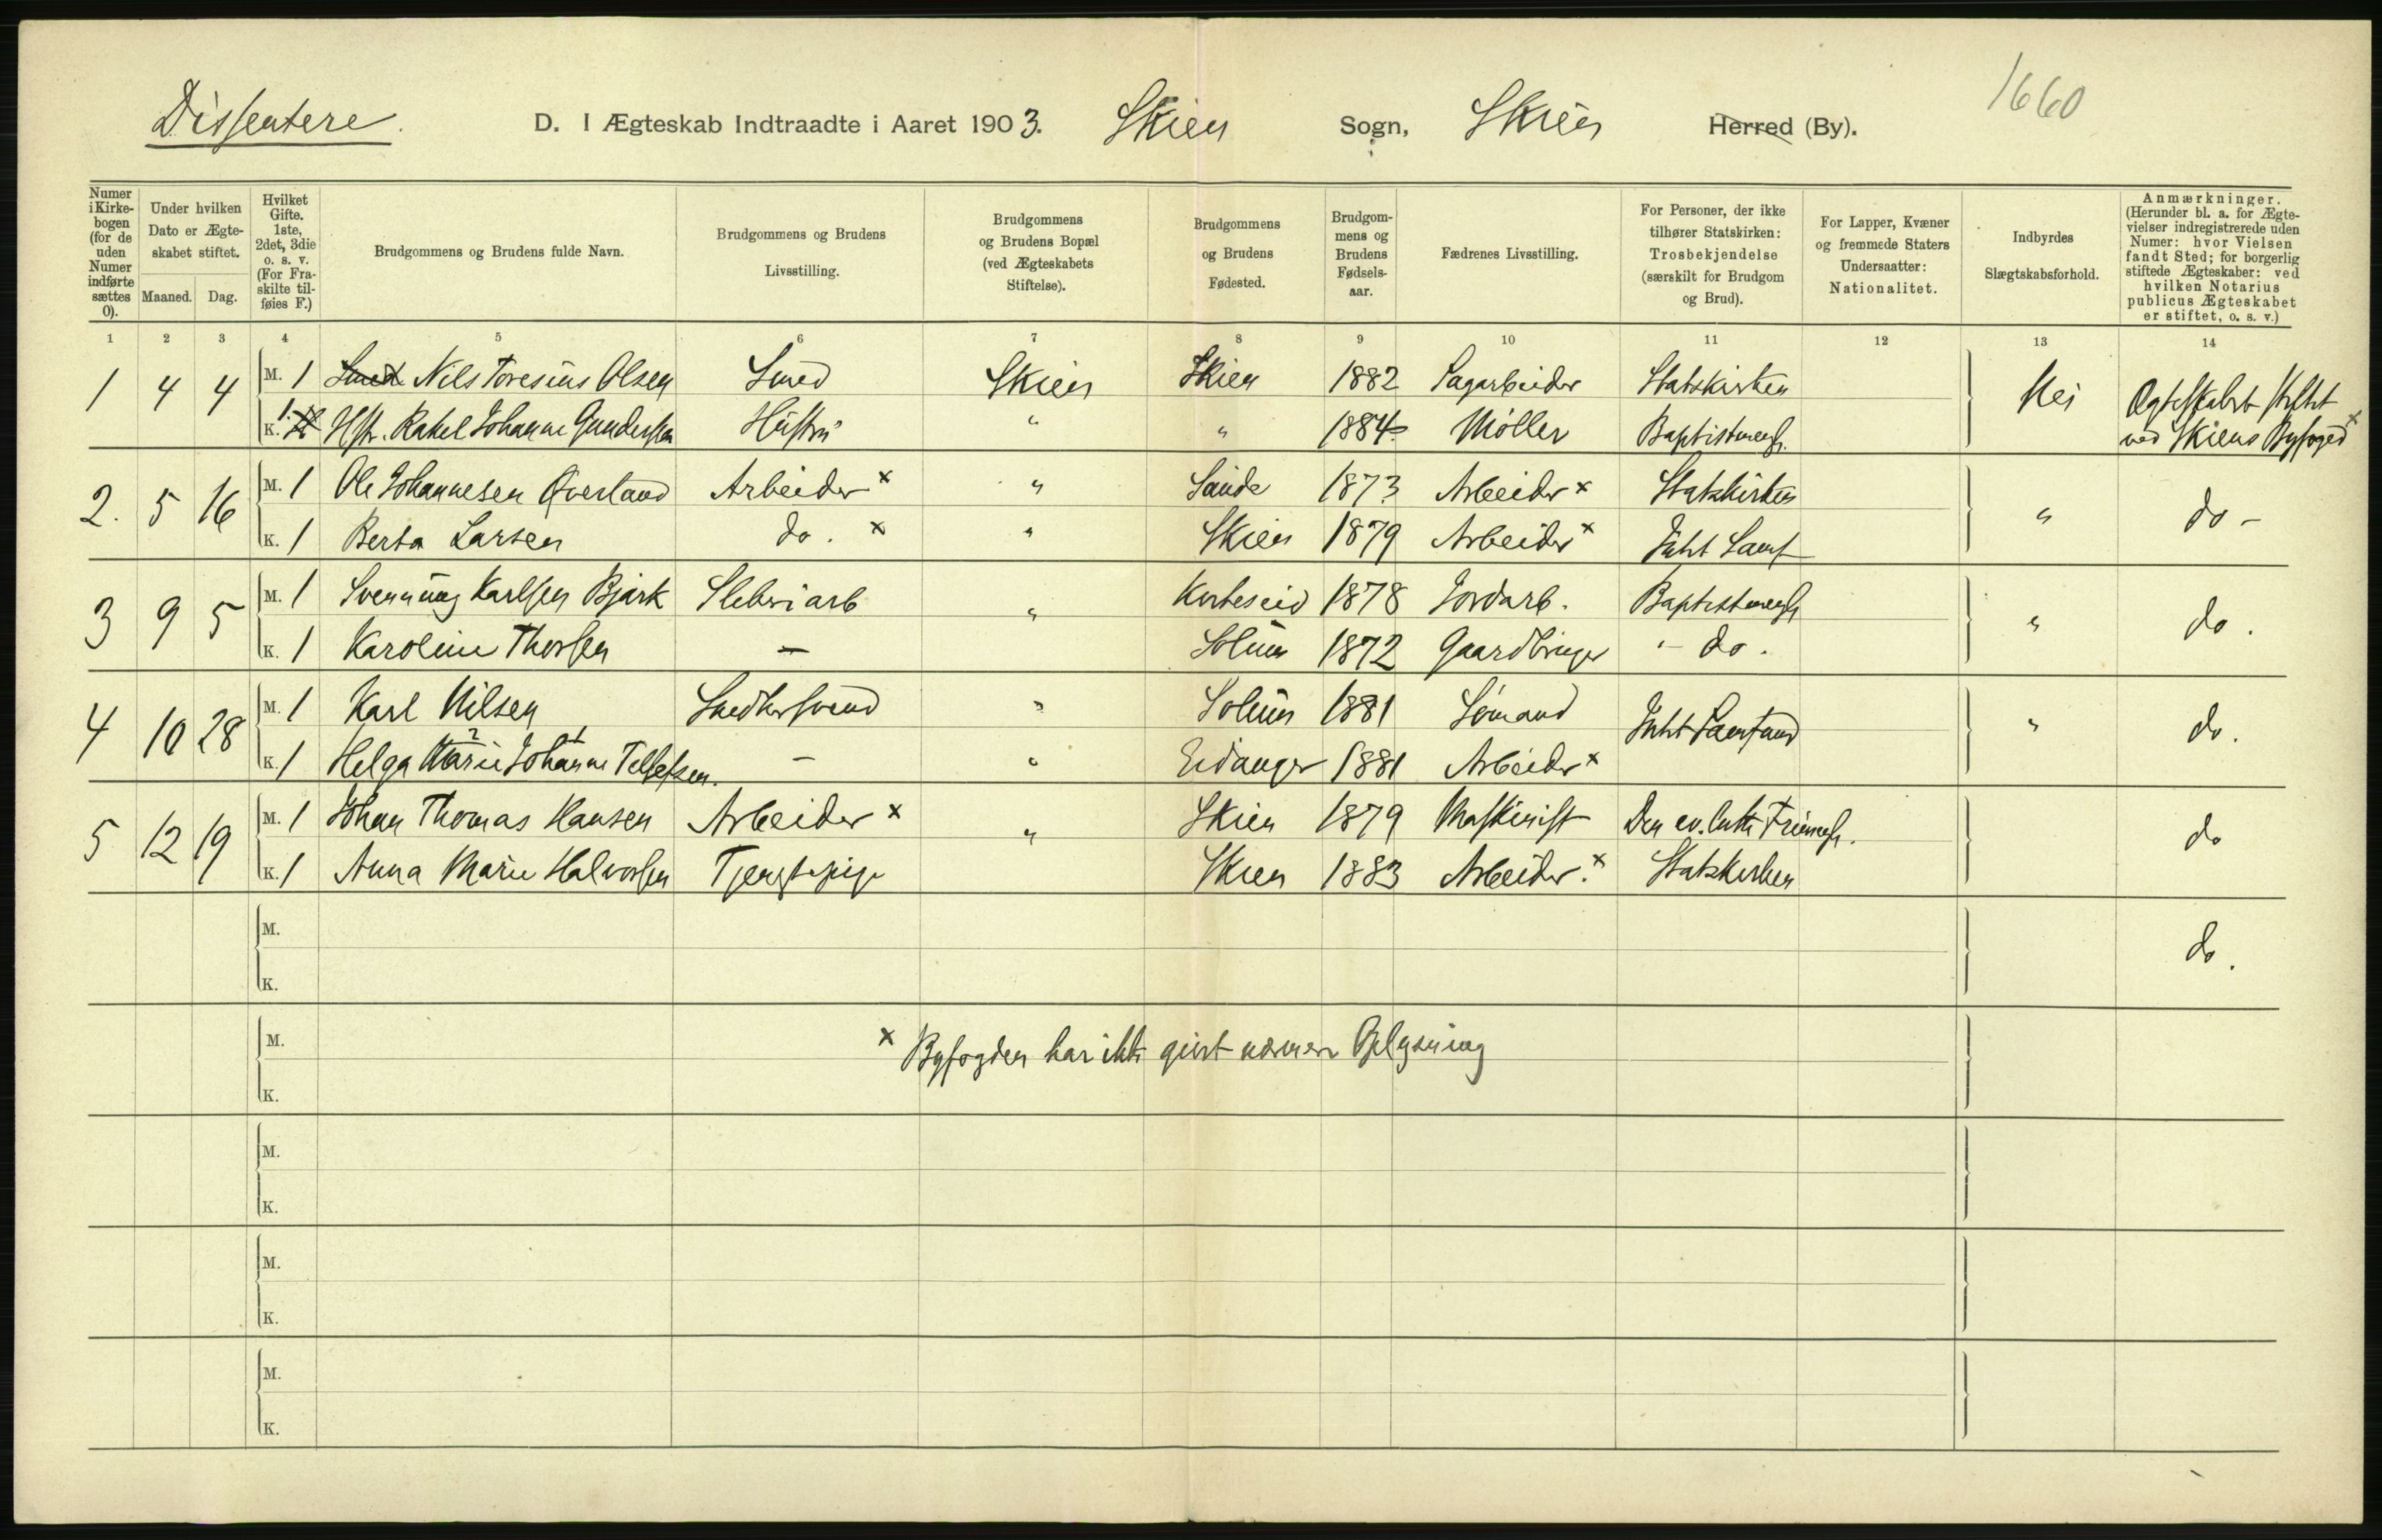 1660
Dissentere.
D. I Ægteskab Indtraadte i Aaret 1903. Skien Sogn, Skien Herred (By).
Numer i Kirkebogen (for de uden Numer indførte sættes 0).
Under hvilken Dato er Ægteskabet stiftet.
Maaned. Dag.
Hvilket Gifte. 1ste, 2det, 3die o. s. v. (For Fraskilte tilføies F.)
Brudgommens og Brudens fulde Navn.
Brudgommens og Brudens Livsstilling.
Brudgommens og Brudens Bopæl (ved Ægteskabets Stiftelse).
Brudgommens og Brudens Fødested.
Brudgommens og Brudens Fødselsaar.
Fædrenes Livsstilling.
For Personer, der ikke tilhører Statskirken: Trosbekjendelse (særskilt for Brudgom og Brud).
For Lapper, Kvæner og fremmede Staters Undersaatter: Nationalitet.
Indbyrdes Slægtskabsforhold.
Anmærkninger. (Herunder bl. a. for Ægtevielser indregistrerede uden Numer: hvor Vielsen fandt Sted; for borgerlig stiftede Ægteskaber: ved hvilken Notarius publicus Ægteskabet er stiftet, o. s. v.)
1 2 3 4 5 6 7 8 9 10 11 12 13 14
1 4 4 M. 1 Smed Nils Toresius Olsen Smed Skien Skien 1882 Sagarbeider Statskirken Nei Ægteskabet stiftet
K. 1 Hstr. Rakel Johanne Gundersen Hustru " " 1884 Møller Baptistmengh. ved Skiens Byfoged x
2. 5 16 M. 1 Ole Johannesen Øverland Arbeider x " Saude 1873 Arbeider x Statskirken " do -
K. 1 Berta Larsen do. x " Skien 1879 Arbeider x Luth Samf
3 9 5 M. 1 Svennung Karlsen Bjørk Sliberiarb " 1878 Jordarb. Baptistmengh " do.
K. 1 Karoline Thorsen — Solum 1872 Gaardbruger - do.
4 10 28 M. 1 Karl Nilsen Snedkersvend " Solum 1881 Sømand " do.
K. 1 Helga Marie Johanne Tellefsen. — " Eidanger 1881 Arbeider x
5 12 19 M. 1 Johan Thomas Hansen Arbeider x " Skien 1879 Maskinist Den ev. luth Frimengh. do
K. 1 Anna Marie Halvorsen Tjenestepige Skien 1883 Arbeider. x Statskirken
M. do.
K.
M.
x Byfogden har ikke givet nærmere Oplysning
K.
M.
K.
M.
K.
M.
K.